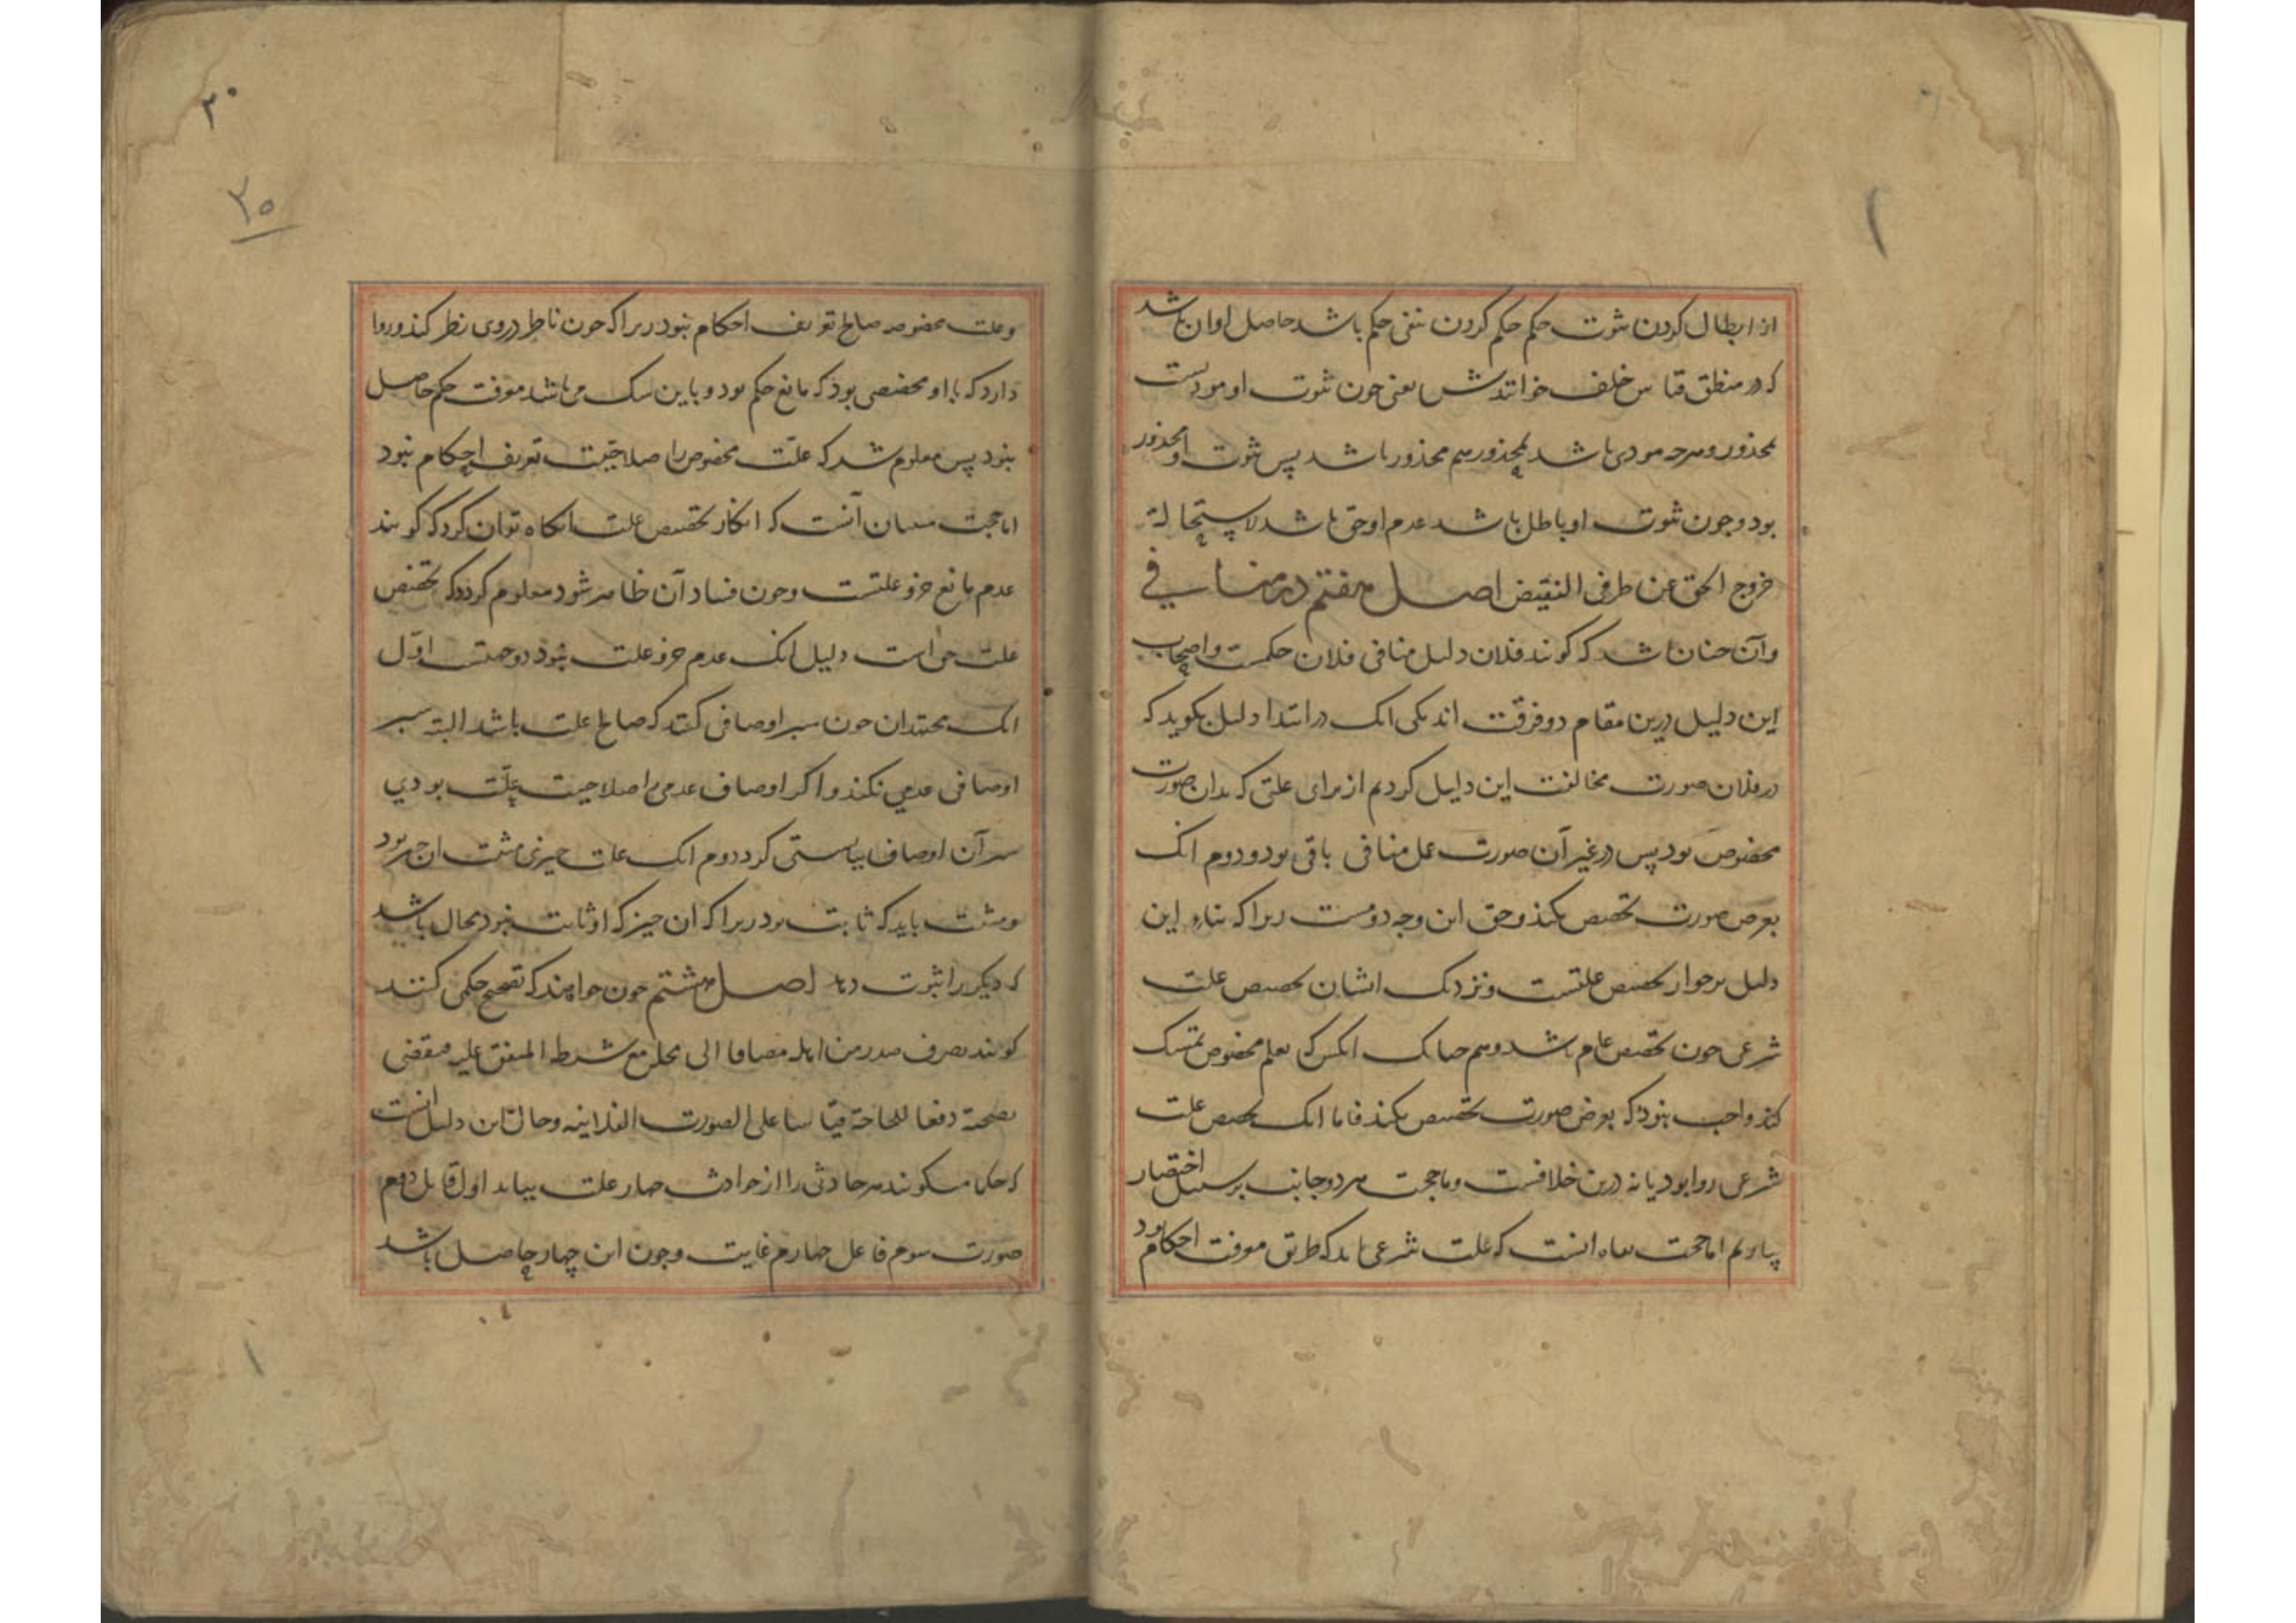 از ابطال کردن ثبوت حکم حکم کردن بنفی حکم باشد حاصل او ان باشد
که در منطق قیاس خلف خوانندش یعنی چون ثبوت او مودیست
بمحذور و هرچه مودی باشد بمحذور هم محذور باشد پس ثبوت او محذور
بود و چون ثبوت او باطل باشد عدم او حق باشد لاستحالة
خروج الحق عن طرفی النقیض اصل هفتم در منافی
و آن چنان باشد که کویند فلان دلیل منافی فلان حکمست و اصحاب
این دلیل درین مقام دو فرقت اند یکی انک در ابتدا دلیل بکوید که
در فلان صورت مخالفت این دلیل کردیم از برای علتی که بدان صورت
مخصوص بود پس در غیر آن صورت عمل منافی باقی بود و دوم انک
بعرض صورت تخصیص نکند و حق این وجه دومست زیرا که بناء این
دلیل بر جواز تخصیص علتست و نزدیک ایشان تخصیص علت
شرعی چون تخصیص عام باشد و هم چنانک انکس که بعلم مخصوص تمسک
کند واجب نبود که بعرض صورت تخصیص بکند فاما انک تخصیص علت
شرعی روا بود یا نه درین خلافست و ما حجت هر دو جانب بر سبیل اختصار
بیاوریم اما حجت نفاة انست که علت شرعی باید که طریق معرفت احکام بود
۳۰
۳۵
و علت مخصوصه صالح تعریف احکام نبود زیرا که چون ناظر در وی نظر کند و روا
دارد که با او مخصصی بود که مانع حکم بود و با این شک می باشد معرفت حکم حاصل
نبود پس معلوم شد که علت مخصوص را صلاحیت تعریف احکام نبود
اما حجت مثبتان آنست که انکار تخصیص علت انکاه توان کرد که کویند
عدم مانع جزو علتست و چون فساد آن ظاهر شود معلوم کردد که تخصیص
علت حق است دلیل انک عدم جزو علت نبود دو حجتست اول
انک مجتهدان چون سبر اوصافی کنند که صالح علت باشد البته سبر
اوصافی عدمی نکنند و اکر اوصاف عدمی را صلاحیت علت بودی
سبر آن اوصاف ببایستی کرد دوم انک علت چیزی مثبت ان چیز بود
و مثبت باید که ثابت بود زیرا که ان چیز که او ثابت نبود محال باشد
که دیکر را ثبوت دهد اصل هشتم چون خواهند که تصحیح حکمی کنند
کویند تصرف صدر من اهله مضافا الی محله مع شرطه المتفق علیه فیقضی
بصحته دفعا للحاجة قیاسا علی الصورت الفلانیه و حال این دلیل انست
که حکما میکویند هر حادثی را از حوادث چهار علت بباید اول قابل دوم
صورت سوم فاعل چهارم غایت و چون این چهار حاصل باشد